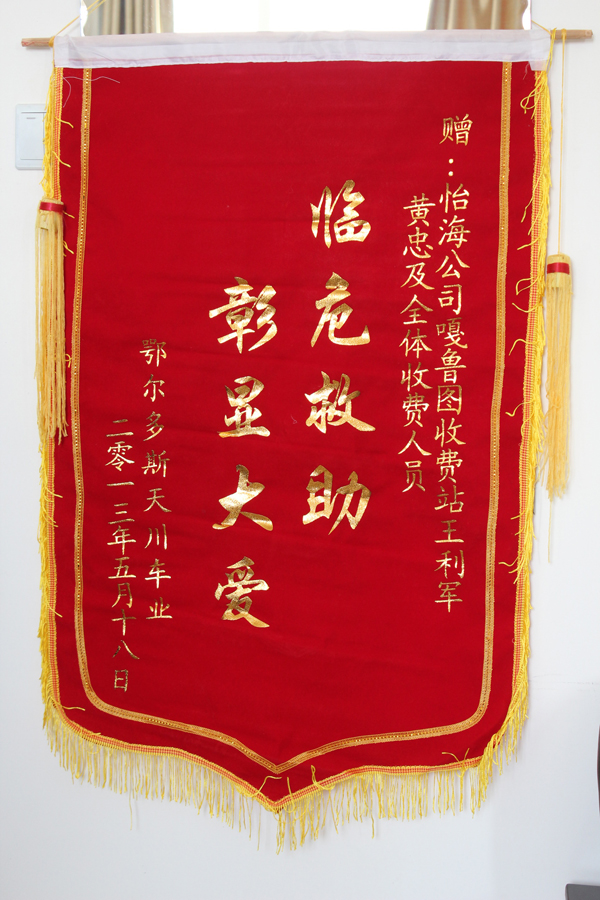 赠：怡海公司嘎鲁图收费站王利军
黄忠及全体收费人员
临危救助
彰显大爱
鄂尔多斯天川车业
二零一三年五月十八日